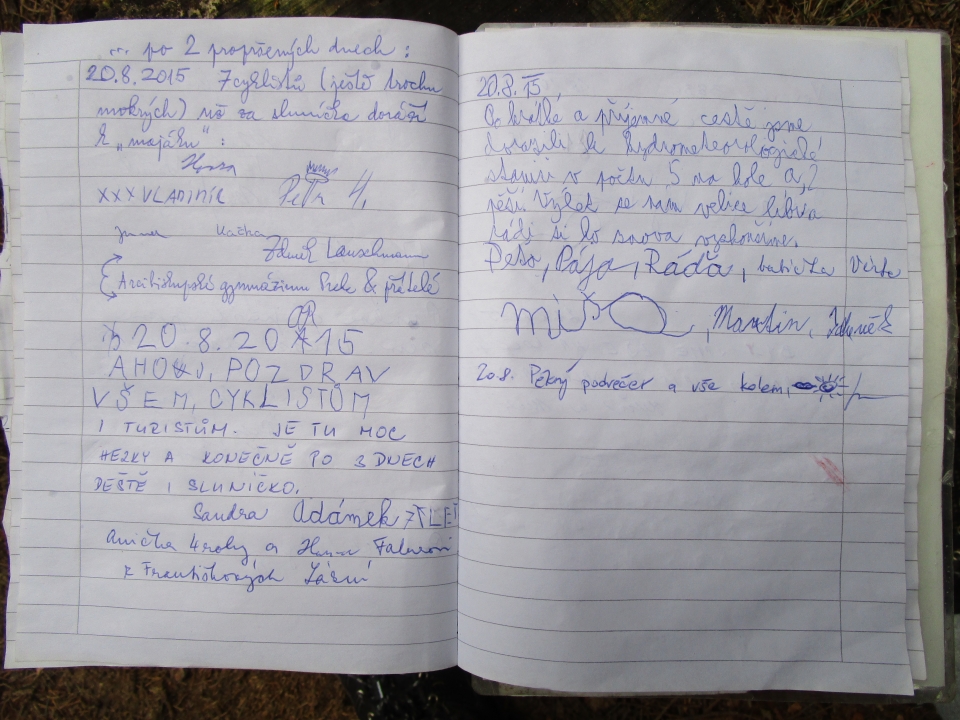 ... po 2 propršených dnech :
20.8.2015 7 cyklistů (ještě trochu
mokrých) už za sluníčka doráží
k „majáku“ :
Hana
XXX VLADIMÍR Petr H,
Kačka
Zdeněk Lauschmann
Arcibiskupské gymnázium Praha & přátelé
20.8.2015
AHOJ, POZDRAV
VŠEM, CYKLISTŮM
I TURISTŮM. JE TU MOC
HEZKY A KONEČNĚ PO 3 DNECH
DEŠTĚ I SLUNÍČKO.
Sandra Adámek 7 LET
Anička 4 roky a
z Františkových Lázní
20.8.15,
Po krátké a příjemné cestě jsme
dorazili k hydrometeorologické
stanici v počtu 5 na kole a 2
pěší. Výlet se nám velice líbil a
rádi si to znova
Peťo, Pája, Ráďa, babička Věrka
Míša, Martin,
20.8. Pěkný podvečer a vše kolem,